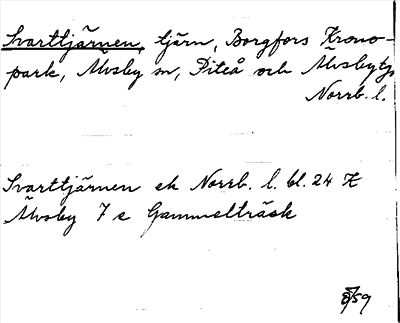 Svarttjärnen, tjärn, Borgfors Krono-
park, Älvsby sn, Piteå och Älvsby tg,
Norrb. l.
Svarttjärnen ek Norrb. l. bl. 24 H
Älvsby 7 e Gammelträsk